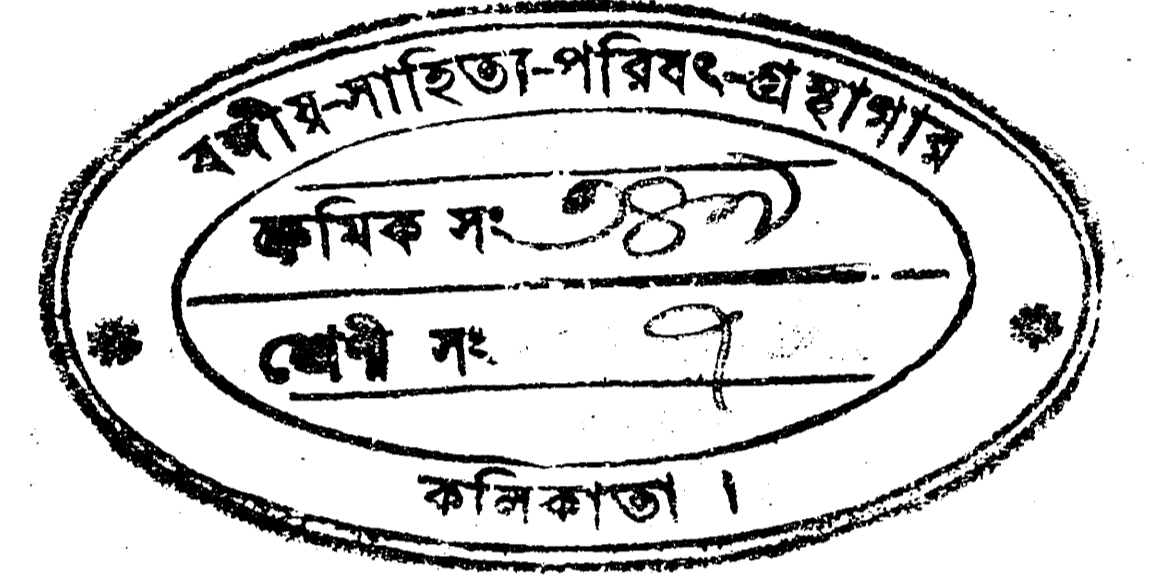 বঙ্গীয়-সাহিত্য-পরিষৎ-গ্রন্থাগার
ক্রমিক সং
শ্রেণী সং ৭
কলিকাতা ।